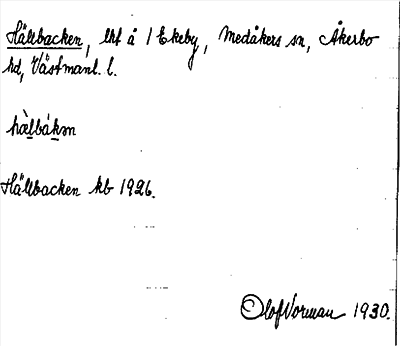 Hällbacken, lht å 1 Ekeby, Medåkers sn, Åkerbo
hd, Västmanl. l.
hὰlbákən
Hällbacken kb 1926.
Olof Norman 1930.